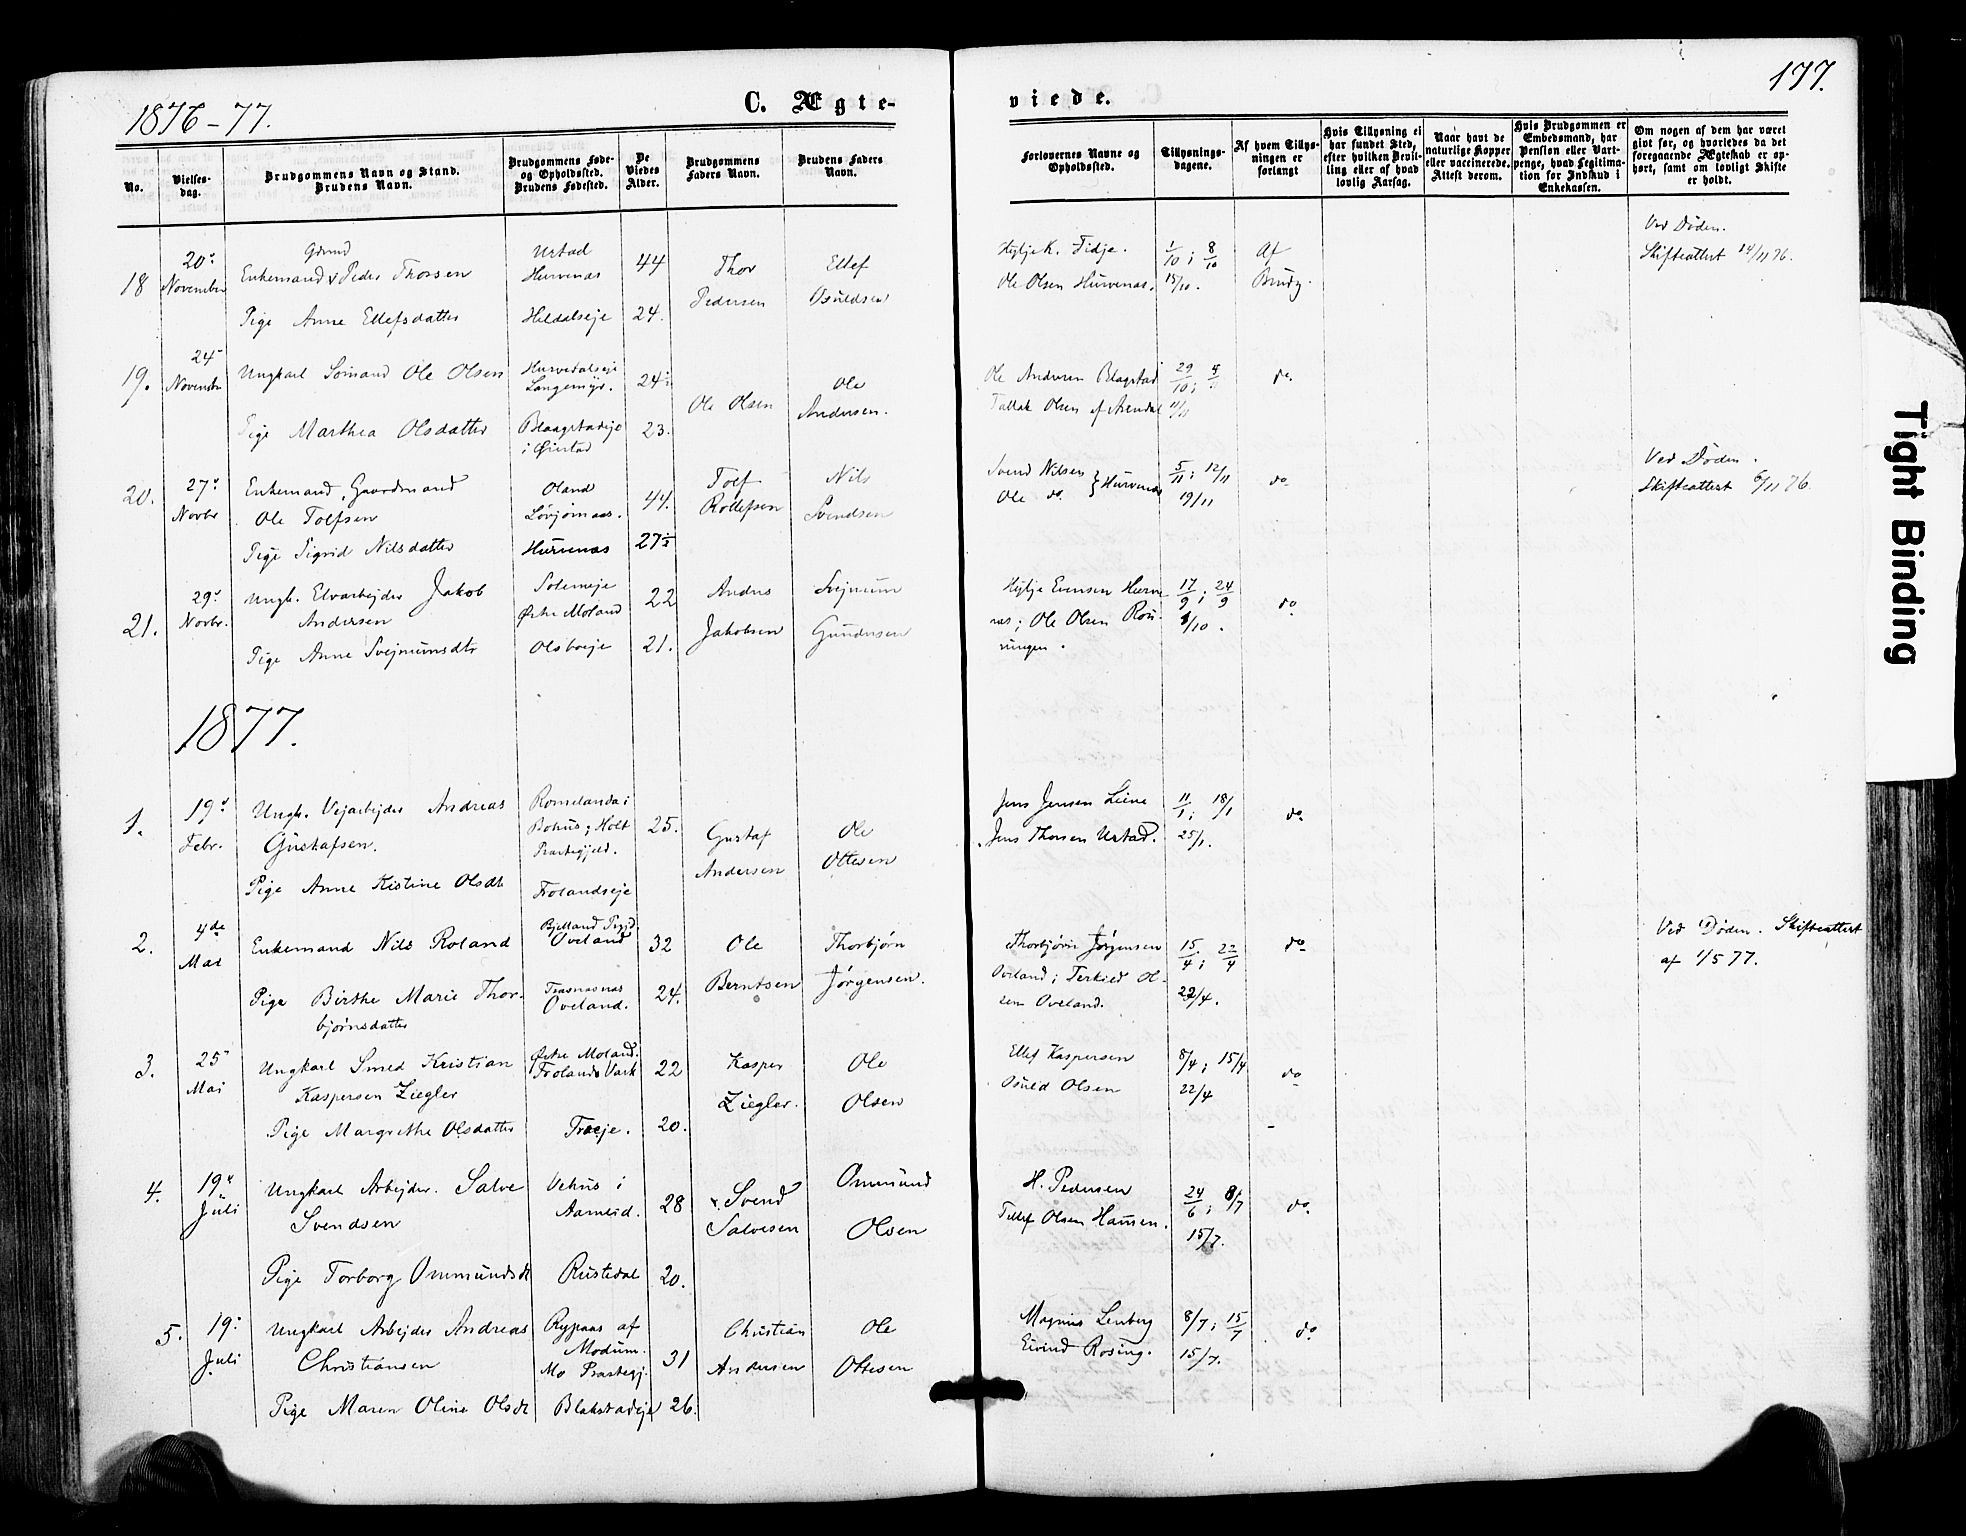 1876-77.
C. Ægte-
viede.
177.
No.
Vielses-
dag.
Brudgommens Navn og Stand.
Brudens Navn.
Brudgommens Føde-
og Opholdssted.
Brudens Fødested.
De
Viedes
Alder.
Brudgommens
Faders Navn.
Brudens Faders
Navn.
Forlovernes Navne og
Opholdssted.
Tillysnings-
dagene.
Af hvem Tillys-
ningen er
forlangt
Hvis Tillysning ei
har fundet Sted,
efter hvilken Bevil-
ling eller af hvad
lovlig Aarsag.
Naar havt de
naturlige Kopper
eller vaccinerede.
Attest derom.
Hvis Brudgommen er
Embedsmand, har
Pension eller Vart-
penge, hvad Legitima-
tion for Indskud i
Enkekassen.
Om nogen af dem har været
givt før, og hvorledes da det
foregaaende Ægteskab er op-
hørt, samt om lovligt Skifte
er holdt.
18
20:
November
Grmd
Enkemand Peder Thorsen
Pige Anne Ellefsdatter
Urstad
Hurvenas
Hildalseje
44
24.
Thor
Pedersen
Ellef
Osuldsen
Hyljek. Fidje.
Ole Olsen Hurvenas.
1/10; 8/10
15/10.
Af
Brudg.
Ved Døden.
Skifteattest 14/11 76.
19.
24
Novembr
Ungkarl Sømand Ole Olsen
Pige Marthea Olsdatter
Hurvedalseje
Langemyr.
Blaagstadeje
i Øiestad
24½
23.
Ole Olsen
Ole
Andersen.
Ole Andersen Blagstad
Tallak Olsen af Arendal
29/10;
11/11
do.
20.
27:
Novbr
Enkemand, Gaardmand
Ole Tolfsen
Pige Sigrid Nilsdatter
Oland
Løvjomas.
Hurvenas
44.
27½
Tolf
Rollefsen
Nils
Svendsen
Svend Nilsen
Ole do. } Hurvenas
5/11; 12/11
19/11
do
Ved Døden.
Skifteattest 6/11 76.
21.
29:
Novbr.
Ungk. Elvarbejder Jakob
Andersen
Pige Anne Svejnumsdtr
Solemeje
Østre Moland
Olsboeje
22
21.
Anders
Jakobsen
Svejnum
Gundersen
Hylje Evensen Hurve
nas; Ole Olsen Rou-
ningen.
17/9; 24/9
1/10.
do
1877.
1.
19:
Febr.
Ungk. Vejarbejder Andreas
Gustafsen.
Pige Anne Kistine Olsdt
Romelanda i
Bohus; Holt
Prastegjeld.
Frolandseje
25.
Gustaf
Andersen
Ole
Ottesen
Jens Jensen Leine
Jens Thorsen Urstad.
11/1; 18/1
25/1.
do
2.
4de
Mai
Enkemand Nils Roland
Pige Birthe Marie Thor-
bjørnsdatter
Bjelland Pgjd.
Oveland
Oveland.
32
24.
Ole
Berntsen
Thorbjørn
Jørgensen.
Thorbjørn Jørgensen
Oveland; Terkied Ol-
sen Oveland.
15/4; 22/4
22/4.
do
Ved Døden. Skifteattest
af 1/5 77.
3.
25
Mai
Ungkarl Smed Kristian
Kaspersen Ziegler
Pige Margrethe Olsdatter
Østre Moland.
Frolands Vark
Traeje.
22
20.
Kasper
Ziegler.
Ole
Olsen
Ellef Kaspersen
Osuld Olsen
8/4; 15/4
22/4
do
4.
19:
Juli
Ungkarl Arbejder. Salve
Svendsen
Pige Torborg Ommundsdt
Vehus i
Aamlid.
Rustedal
28
20.
Svend
Salvesen
Ommund
Olsen
H. Pedersen
Tellef Olsen Hansen.
24/6; 8/7
15/7.
do.
5.
19:
Juli
Ungkarl Arbejder Andreas
Christiansen
Pige Maren Oline Olsdt
Rypaas af
Modum.
Mo Prastegj.
Blakstadeje
31
26.
Christian
Andersen
Ole
Ottesen
Magnus Lenberg
Eivind Rosing.
8/7; 15/7
15/7.
do
Tight Binding